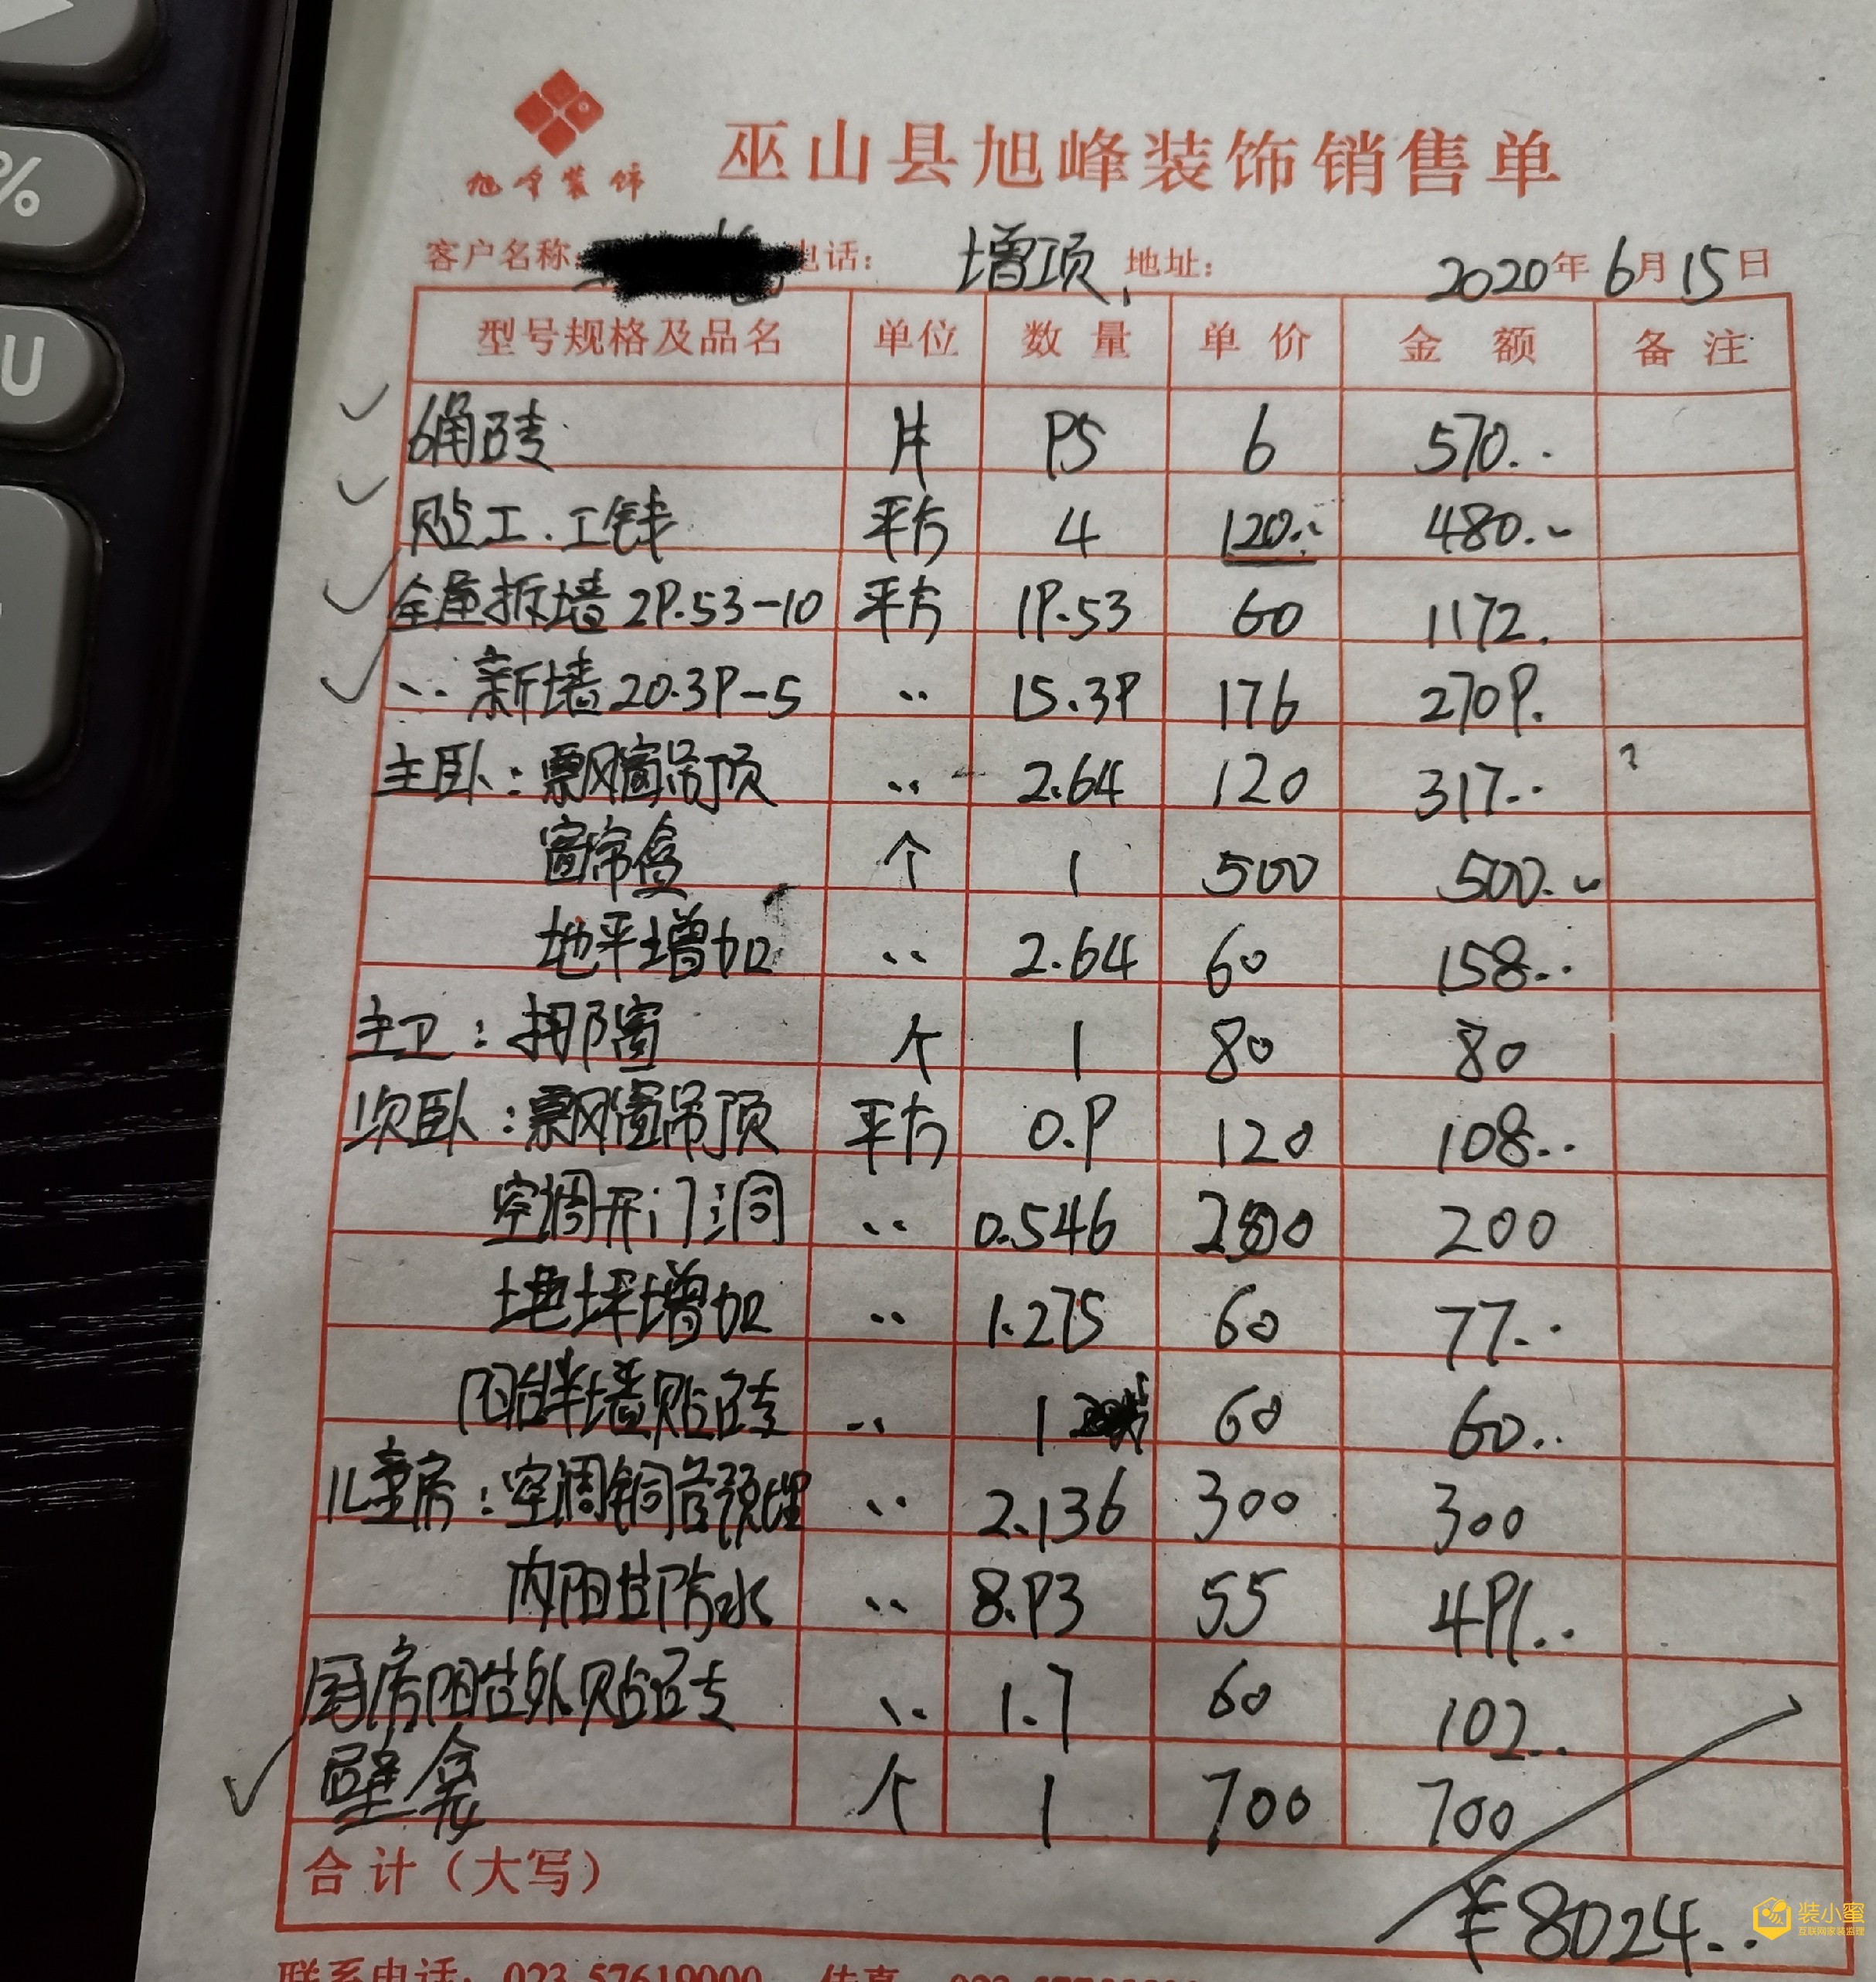 %
U
旭峰装饰
巫山县旭峰装饰销售单
客户名称: 电话: 增项 地址: 2020年6月15日
型号规格及品名 单位 数量 单价 金额 备注
6角砖 片 95 6 570..
贴工.工钱 平方 4 120.. 480..
全屋拆墙29.53-10 平方 19.53 60 1172.
.. 新墙20.39-5 .. 15.39 176 2709.
主卧:飘窗吊顶 .. 2.64 120 317.. ?
窗帘盒 个 1 500 500..
地平增加 .. 2.64 60 158..
主卫: 窗 个 1 80 80
次卧:飘窗吊顶 平方 0.9 120 108..
空调开门洞 .. 0.546 200 200
地坪增加 .. 1.275 60 77..
阳台半墙贴砖 .. 1 60 60..
儿童房:空调铜管预埋 .. 2.136 300 300
内阳台防水 .. 8.93 55 491..
厨房阳台外贴砖 .. 1.7 60 102..
壁龛 个 1 700 700
合计(大写) ¥8024..
装小蜜
互联网家装监理
联系电话: 023-57619000 传真